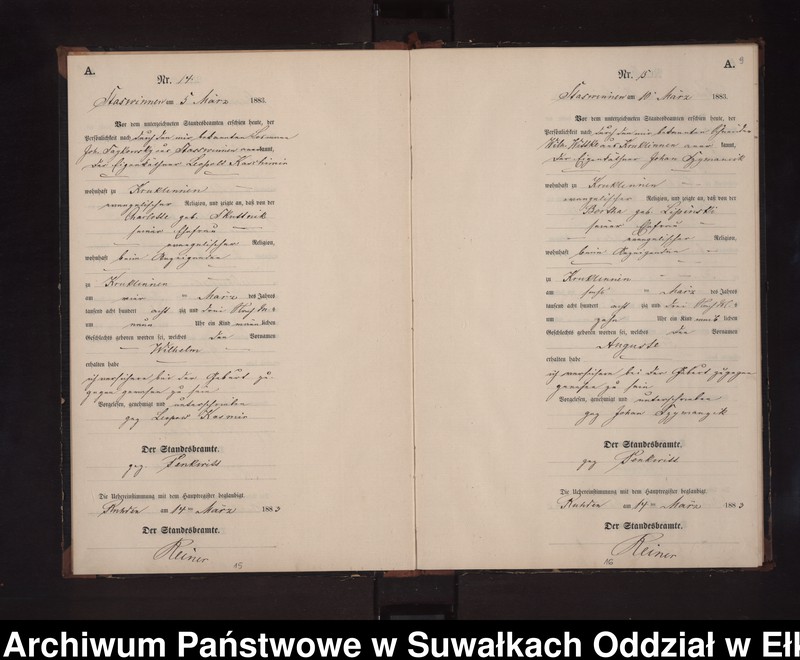 A.
Nr. 14.
am 5 März 1883.
Vor dem unterzeichneten Standesbeamten erschien heute, der
Persönlichkeit nach durch den mir bekannten
Joh. kannt,
der Eigenkäthner Leopold
wohnhaft zu Kruklinnen
evangelischer Religion, und zeigte an, daß von der
Charlotte geb. Skuttnik
seiner Ehefrau
evangelischer Religion,
wohnhaft beim Anzeigenden
zu Kruklinnen
am vier März des Jahres
tausend acht hundert acht zig und drei Nachm.
um neun Uhr ein Kind männlichen
Geschlechts geboren worden sei, welches den Vornamen
Wilhelm
erhalten habe
ich versichere bei der Geburt zu-
gegen gewesen zu sein
Vorgelesen, genehmigt und unterschrieben
gez Leopold
Der Standesbeamte.
gez
Die Uebereinstimmung mit dem Hauptregister beglaubigt.
am 14ten März 1883
Der Standesbeamte.
Reiner
15
A.
9
Nr. 15
am 10 März 1883.
Vor dem unterzeichneten Standesbeamten erschien heute, der
Persönlichkeit nach durch den mir bekannten Schneider
Wilh. Kruklinnen kannt,
der Eigenkäthner Johan
wohnhaft zu Kruklinnen
evangelischer Religion, und zeigte an, daß von der
geb.
seiner Ehefrau
evangelischer Religion,
wohnhaft beim Anzeigenden
zu Kruklinnen
am sechs März des Jahres
tausend acht hundert acht zig und drei
um zehn Uhr ein Kind weiblichen
Geschlechts geboren worden sei, welches den Vornamen
Auguste
erhalten habe
ich versichere bei der Geburt zugegen
gewesen zu sein
Vorgelesen, genehmigt und unterschrieben
gez Johan
Der Standesbeamte.
gez
Die Uebereinstimmung mit dem Hauptregister beglaubigt.
am 14ten März 1883
Der Standesbeamte.
Reiner
16
Archiwum Państwowe w Suwałkach Oddział w Ełk